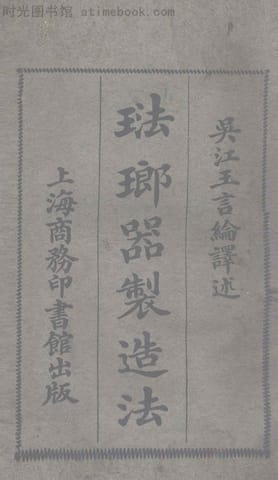 时光图书馆 stimebook.com
吳江王言綸譯述
琺瑯器製造法
上海商務印書館出版